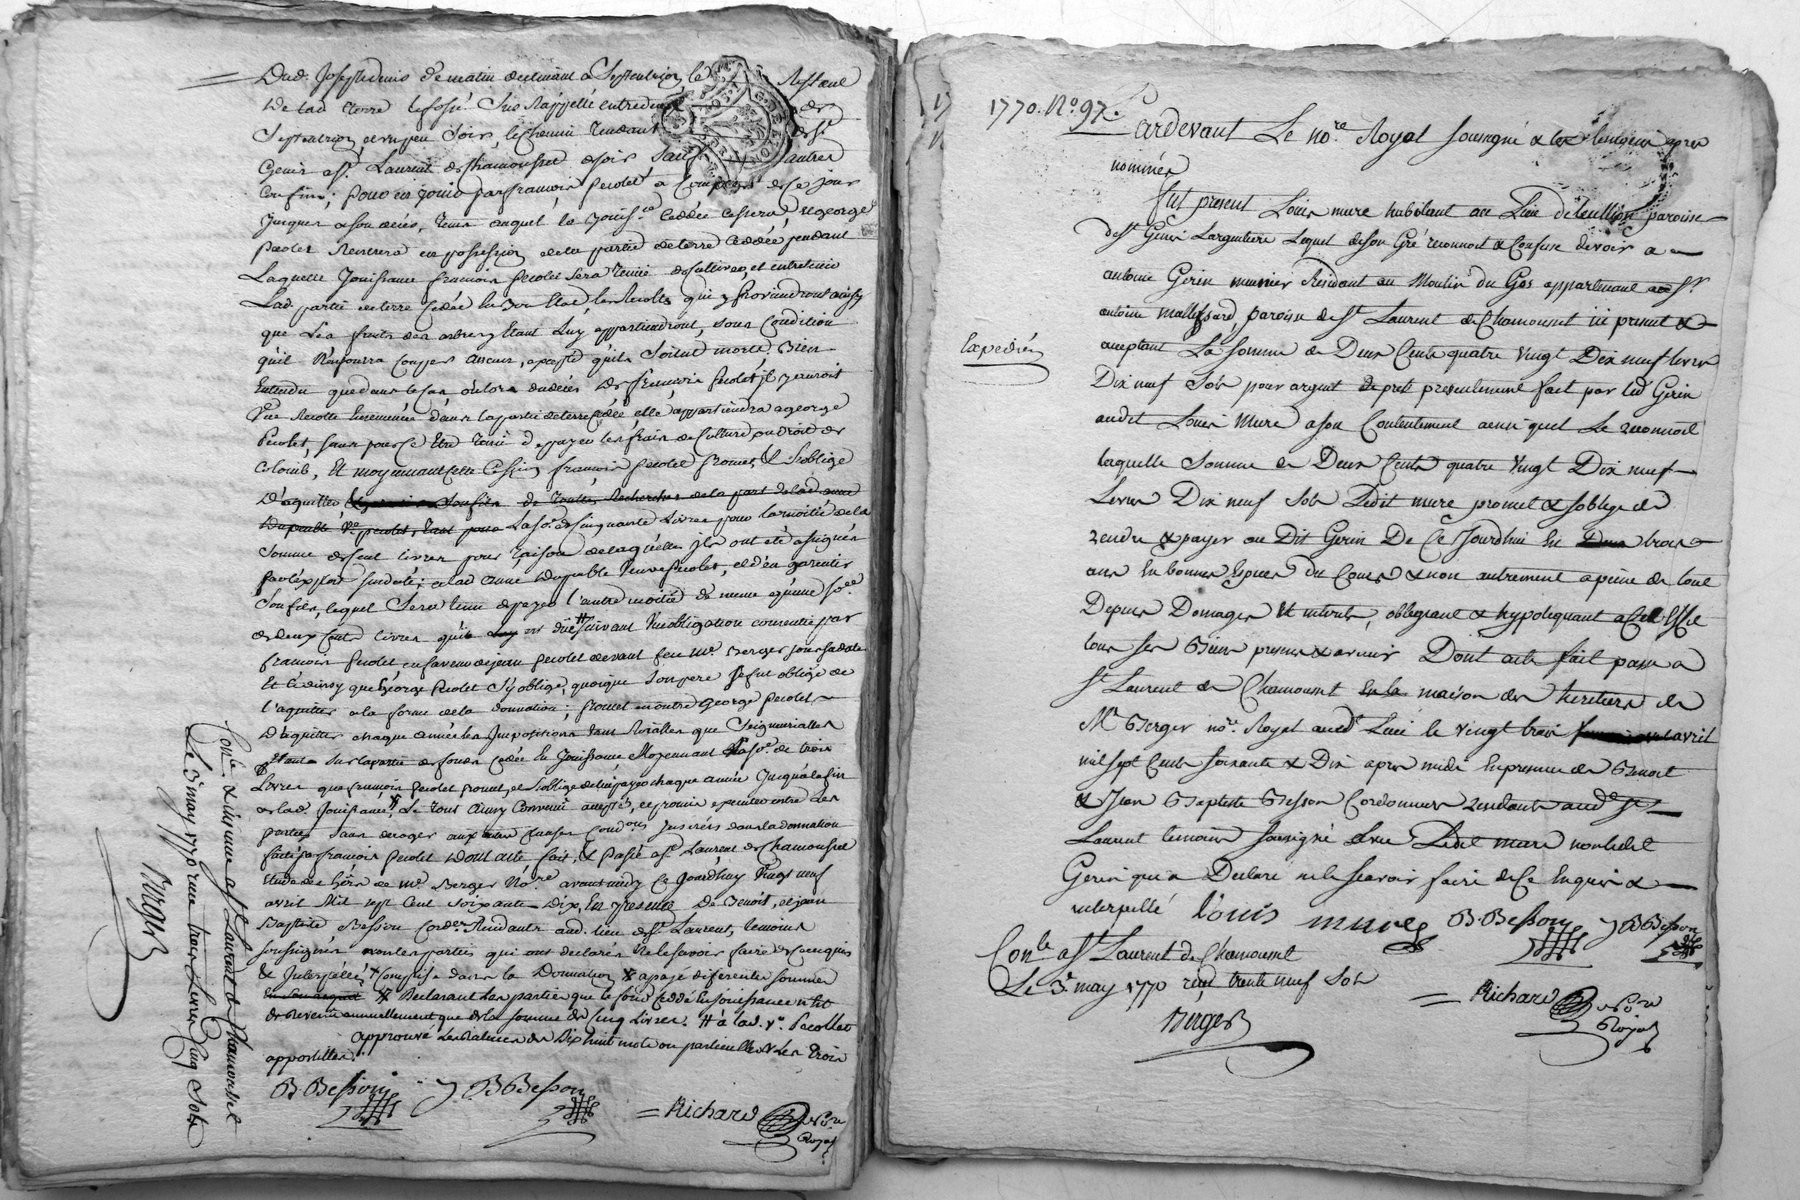 Dud. Joseph denis de matin declinant a Septentrion le Restant
de lad. terre le fossé Sus Rappellé entredeux de
Septentrion, et un peu Soir, le chemin tendant de St
Genis a St Laurent de Chamousset de soir Sauf autres
Confins; pour en jouir par francois pecolet a Compter de ce jour
jusques a son déces, tems auquel la jouiss.ce Ceddée cessera, et george
pecolet Rentrera en possession de la partie de terre Ceddée, pendant
Laquelle jouissance francois pecolet sera tenu de cultiver, et entretenir
Lad. partie de terre Cedée en Bon Etat, les Recoltes qui y proviendront ainsy
que Les fruits des arbres y Etant Luy appartiendront, sous Condition
qu'il N'en pourra Couper aucuns, a moins qu'ils Soient morts. Bien
Entendu que dans le Cas, ou lors du déces de francois pecolet, il y auroit
Une Recolte Ensemencée dans la partie de terre cédée, elle appartiendra a george
Pecolet, sans pour ce Etre tenu de payer les frais de Culture ou droit de
Colomb, Et moyennant cette Cession francois pecolet promet, & S'oblige
D'aquitter de toutes Recherches de la part de lad. anne
Dupeuble Ve pecolet, La so.e de Cinquante Livres pour la moitié de la
Somme de Cent livres pour raison de laquelle ils ont été assignés
par exploit sus daté; a lad anne Dupeuble Veuve pecolet, et d'en garentir
Son fils, lequel Sera tenu de payer l'autre moitié de meme qu'une so.e
de deux Cents livres qu'il est düe suivant l'obligation consentie par
francois pecolet en faveur de jean pecolet devant feu me Berger jour sa date
Et C'est ainsy que George pecolet S'y oblige, quoique Son pere Se fut obligé de
l'aquitter a la forme de la donnation; promet en outre George pecolet
D'aquitter chaque année les Impositions tant Royalles que Seigneuriales
Etant Sur la partie de fonds cédée En Jouissance Moyennant la so.e de trois
Livres que francois pecolet promet, et S'oblige de lui payer chaque année Jusqu'a la fin
de lad. Jouissance. Le tout Ainsy Convenu accepté, et promis executer entre les
parties Sans deroger aux autres Clauses Cond.ons Inserées dans la donnation
faite par francois pecolet dont acte, fait, & passé a St Laurent de Chamousset
Etude des hers de me Berger No.re avant midy Ce Jourdhuy Vingt neuf
avril Mil sept Cent Soixante Dix, En presence De Benoit, et jean
Baptiste Besson Cord.rs Residants aud. lieu de St Laurent, temoins
soussignés non les parties qui ont declarés Ne le Scavoir faire de ce enquis
& Interpellés + Comprise dans la Donnation a payer differentes sommes
Declarant les parties que le fond Ceddé En Jouissance n'est
de Revenu annuellement que de la somme de Cinq Livres. # a lad. Ve. Pecollet
Approuvé Les Ratures de Dix huit mots ou partie d'iceux & Les trois
appostilles.
B Besson J B Besson
= Richard No.re Royal
Con.lé & Insinué a St Laurent de Chamousset
Le 3 may 1770 recu trois Livres Cinq Sols
Berger
1770. No. 97.
Pardevant Le no.re Royal Soussigné & les temoins apres
nommés
fut present Louis mure habitant au Lieu de paroisse
de St Genis Largentiere Lequel de son Gré reconnoit & Confesse devoir a
antoine Gerin munier Residant au Moulin du Gas appartenant au Sr
antoine paroisse de St Laurent de Chamousset ici present &
aceptant La Somme de Deux Cents quatre Vingt Dix neuf livres
Expedié
Dix neuf Sols pour argent de pret presentement fait par led Gerin
audit Louis Mure a son Contentement ainsi quil Le reconnoit
laquelle Somme de Deux Cents quatre Vingt Dix neuf
Livres Dix neuf Sols Ledit mure promet & soblige de
rendre & payer au Dit Gerin De Ce Jourdhui En trois
ans En bonnes Especes du Cours & non autrement a peine de tout
Depens Domages Et interets, obligeant & hypotequant a Cet Effet
tous ses Biens presens & avenir Dont acte fait passé a
St Laurent de Chamousset En la maison des heritiers de
Me Berger no.re Royal aud Lieu le vingt trois avril
mil sept Cents soixante & Dix apres midi En presence de Benoit
& Jean Baptiste Besson Cordonniers residants aud St
Laurent temoins soussignés avec Ledit mure non ledit
Gerin qui a Declaré ne le scavoir faire de Ce Enquis &
interpellé Louis mure B. Besson J B Besson
Con.lé a St Laurent de Chamousset
Le 3e may 1770 recu trente neuf Sols
= Richard No.re Royal
Berger